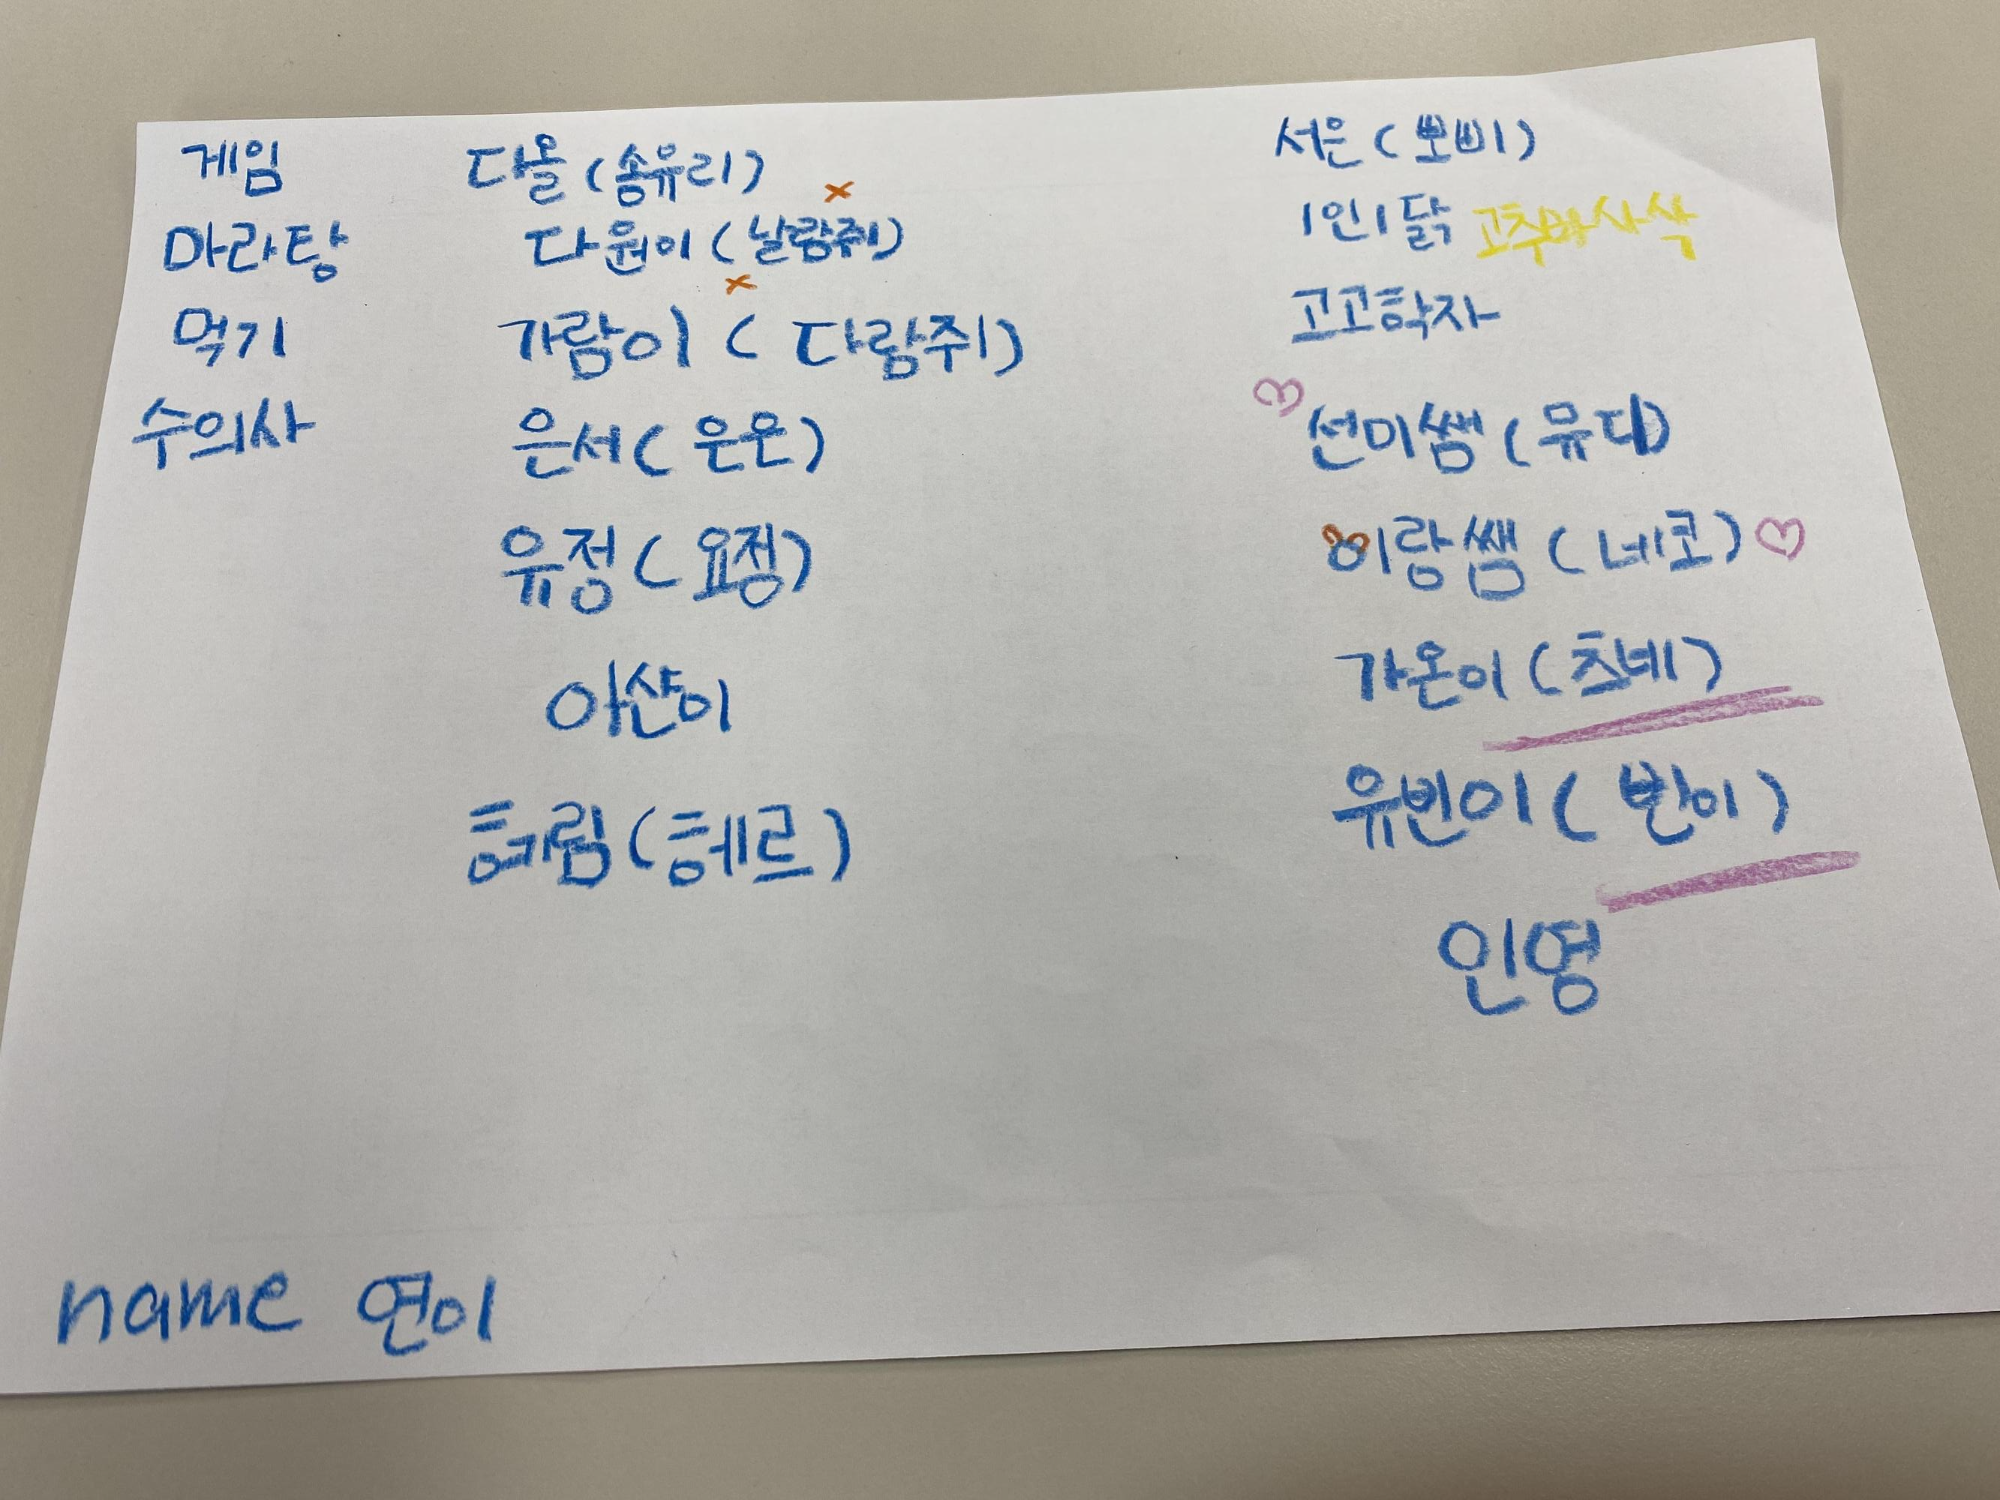 게임
마라탕
먹기
수의사
다올(송유리)
다원이(날람쥐)
가람이(다람쥐)
은서(은온)
유정(요정)
아샨이
혜림(헤르)
서은(뽀삐)
1인1닭 고추바사삭
고고학자
선미쌤(뮤디)
이랑쌤(네코)
가온이(츠네)
유빈이(빈이)
인영
name 연이